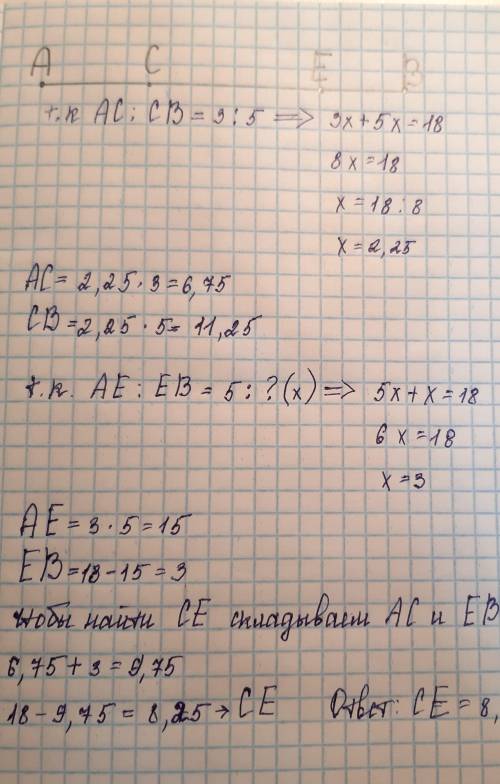 A C E B
т.к AC : CB = 3 : 5 => 3x + 5x = 18
8x = 18
x = 18 : 8
x = 2,25
AC = 2,25 · 3 = 6,75
CB = 2,25 · 5 = 11,25
т.к. AE : EB = 5 : ? (x) => 5x + x = 18
6x = 18
x = 3
AE = 3 · 5 = 15
EB = 18 - 15 = 3
чтобы найти CE складываем AC и EB
6,75 + 3 = 9,75
18 - 9,75 = 8,25 → CE Ответ: CE = 8,